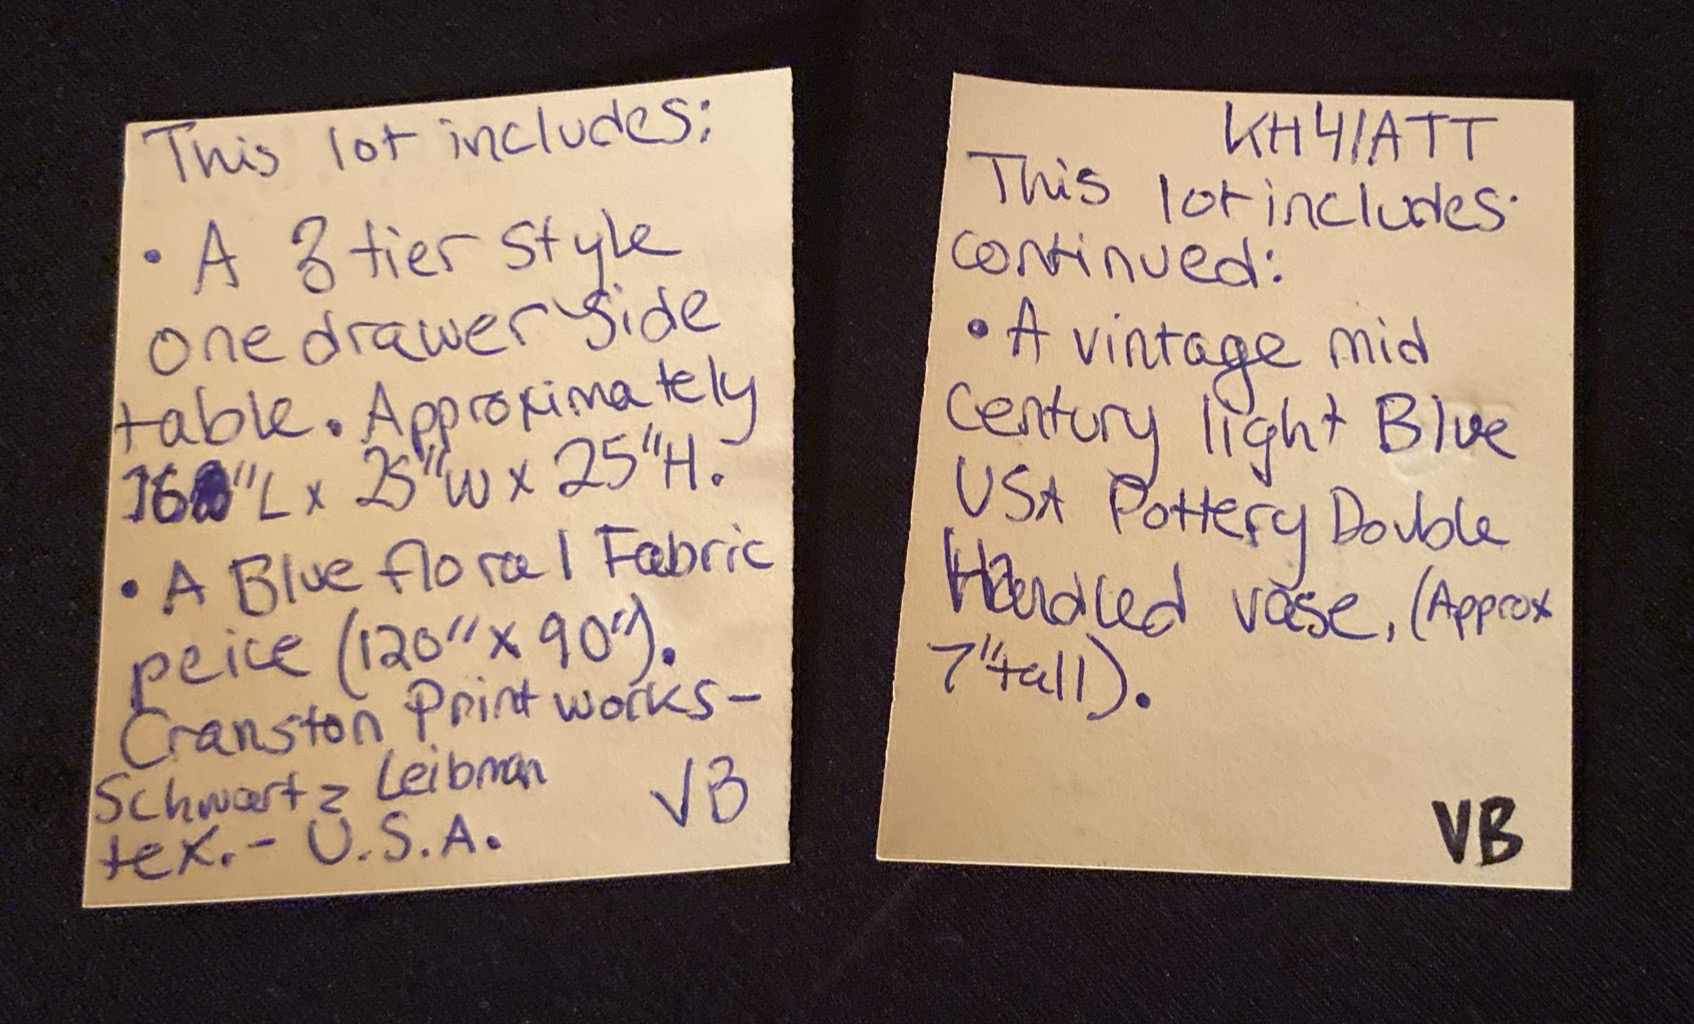 This lot includes:
• A 3 tier style
one drawer side
table. Approximately
16"L x 25"W x 25"H.
• A Blue floral Fabric
peice (120" x 90").
Cranston Print works -
Schwartz Leibman
tex. - U.S.A.
VB
KH41ATT
This lot includes
continued:
• A vintage mid
century light Blue
USA Pottery Double
Handled vase, (Approx
7" tall).
VB